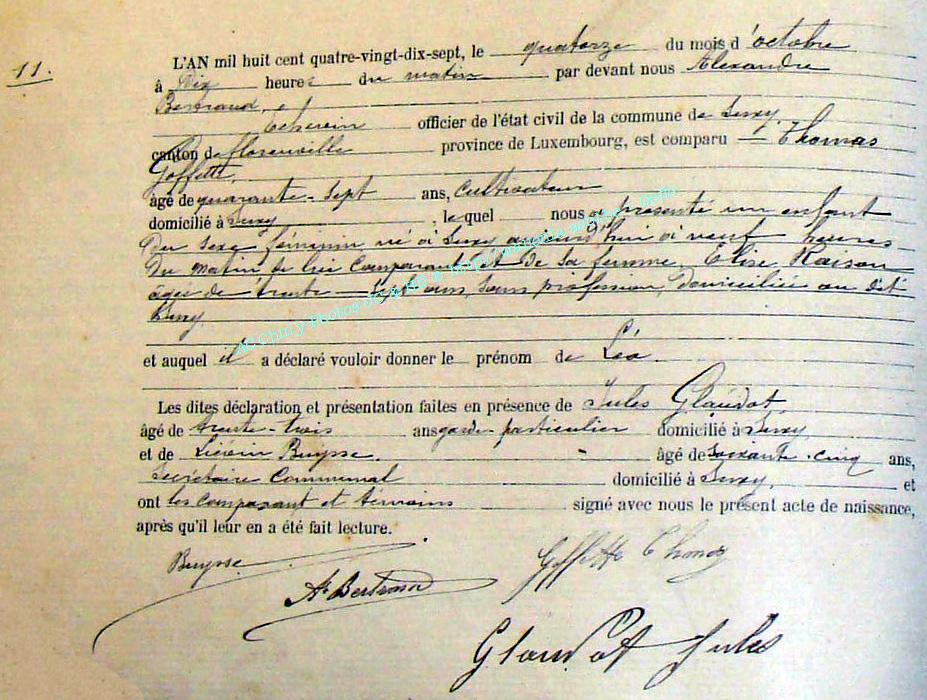 11.
L'AN mil huit cent quatre-vingt-dix-sept, le quatorze du mois d'octobre
à Dix heures du matin par devant nous Alexandre
Bertrand,
Echevin officier de l'état civil de la commune de Suxy
canton de Florenville province de Luxembourg, est comparu Thomas
Goffette,
âgé de quarante-sept ans, cultivateur
domicilié à Suxy, lequel nous a présenté un enfant
Du sexe féminin né à Suxy aujourd'hui à neuf heures
Du matin de lui comparant et de sa femme, Elise Raison
âgée de trente-sept ans, sans profession, domiciliée au dit
Suxy,
et auquel il a déclaré vouloir donner le prénom de Léa.
Les dites déclaration et présentation faites en présence de Jules Glaudot,
âgé de trente-trois ans garde particulier domicilié à Suxy,
et de Liévin Buysse. âgé de soixante-cinq ans,
Secrétaire Communal domicilié à Suxy, et
ont les comparant et témoins signé avec nous le présent acte de naissance,
après qu'il leur en a été fait lecture.
Buysse
Goffette Thomas
Ax Bertrand
Glaudot Jules